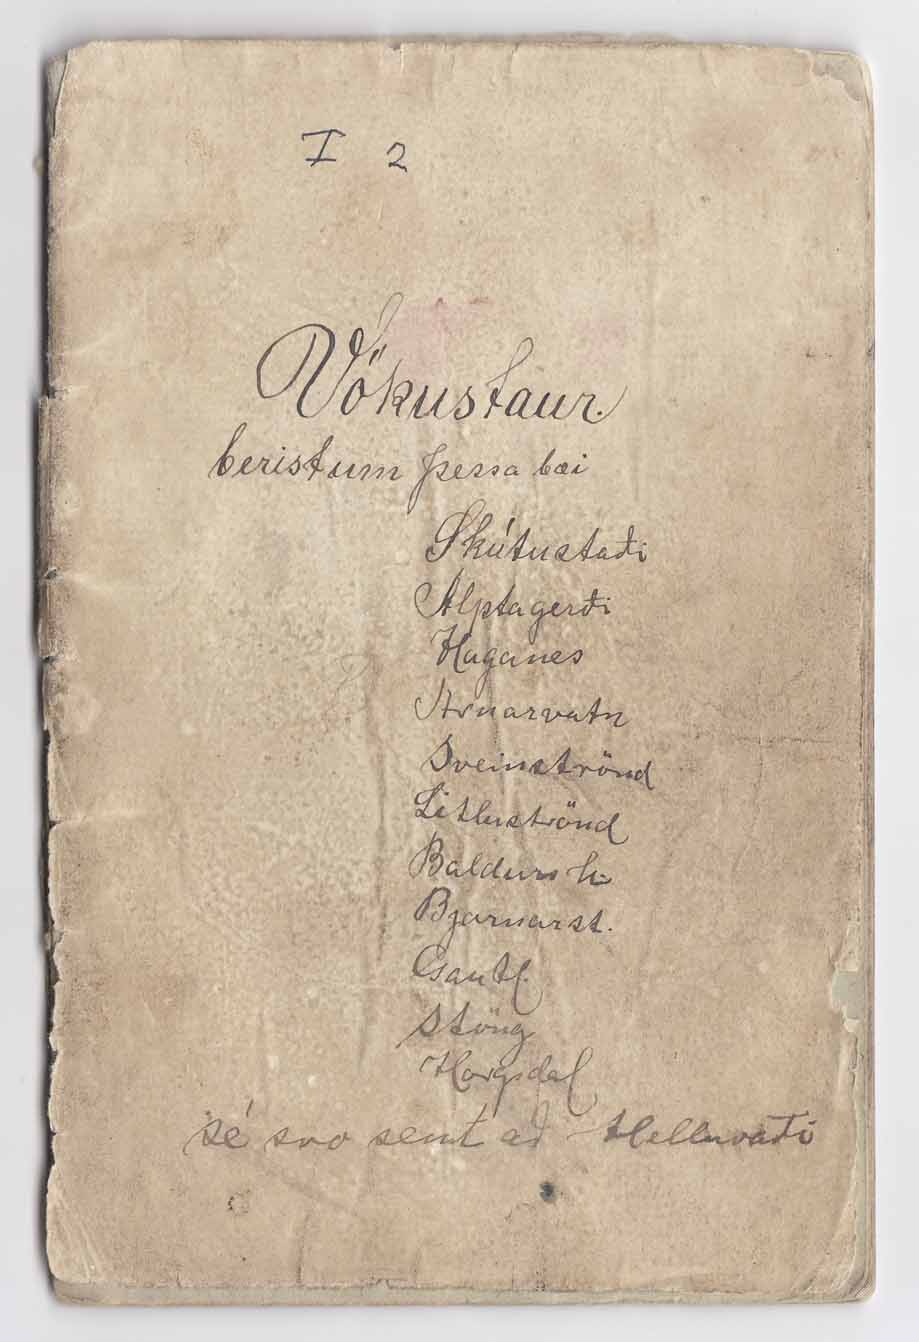 I 2
Vökustaur.
berist um þessa bæi
Skútustaði
Alptagerði
Haganes
Arnarvatn
Sveinströnd
Litluströnd
Baldurs h.
Bjarnarst.
Gautl.
Stöng
Hörgsdal
sé svo sent að Helluvaði